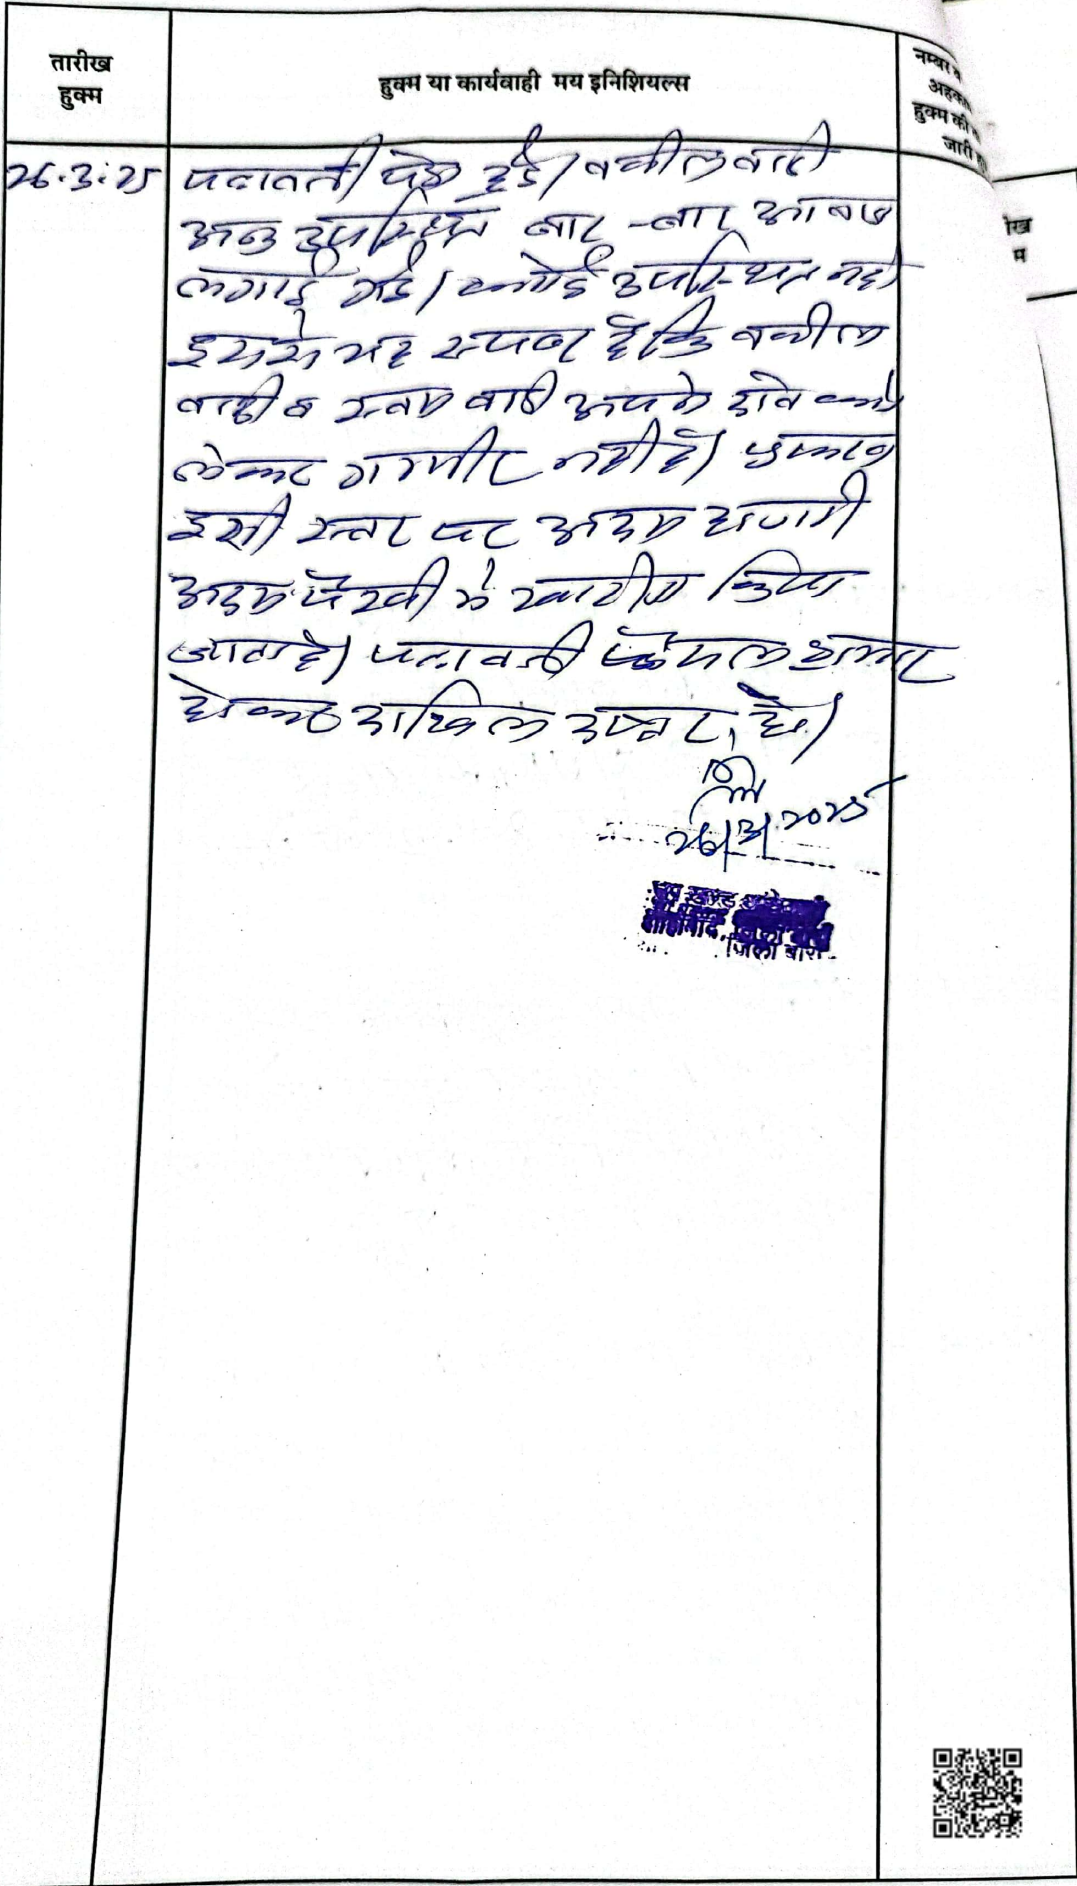 तारीख
हुक्म
हुक्म या कार्यवाही मय इनिशियल्स
नम्बर व
अहका
हुक्म की
जारी
रीख
म
26.3.25
पत्रावली पेश हुई। वकील वादी
अनुउपस्थित बार-बार आवाज
लगाई गई। कोई उपस्थित नही
इससे यह स्पष्ट है कि वकील
वादी व स्वयं वादी अपने दावे को
लेकर गम्भीर नही है। प्रकरण
इसी स्तर पर अदम हाजरी
अदम पैरवी मे खारीज किया
जाता है। पत्रावली फैसल शुमार
होकर दाखिल दफ्तर हो।
26/3/2025
उप खण्ड
शाहाबाद, जिला
जिला बारां